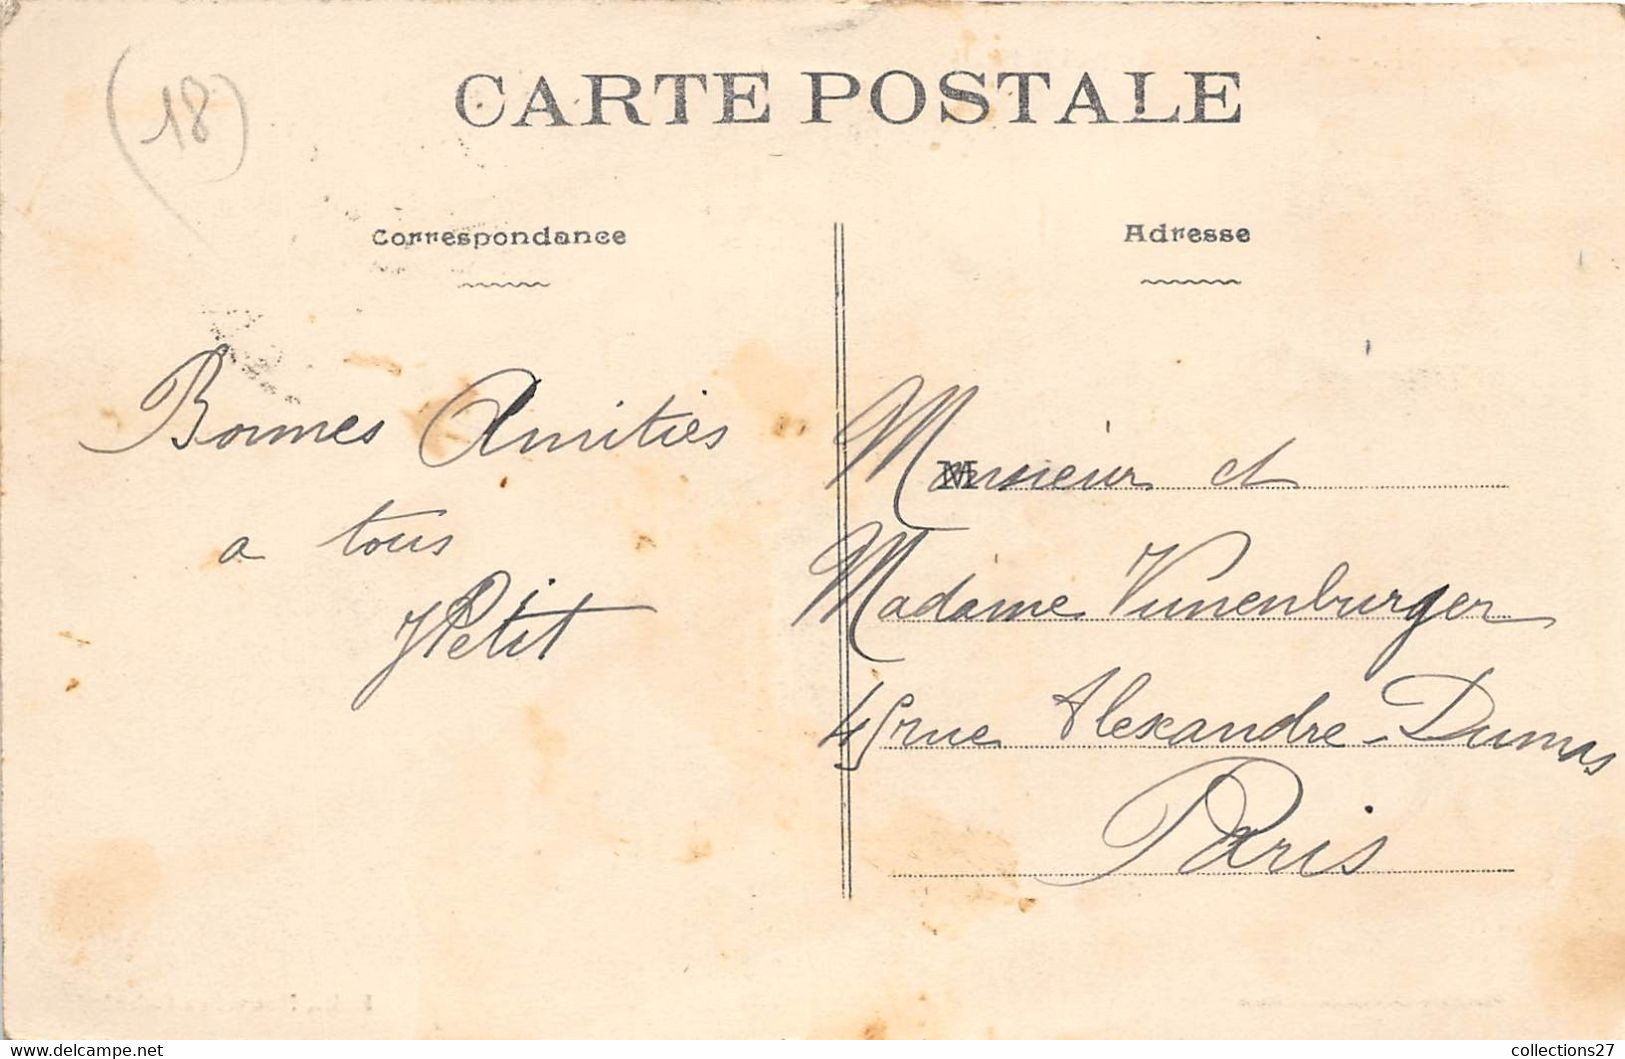 (18)
CARTE POSTALE
Correspondance
Adresse
Bonnes Amitiés
a tous
JPetit
M
Monsieur et
Madame Vunenburger
45 rue Alexandre-Dumas
Paris
collections27